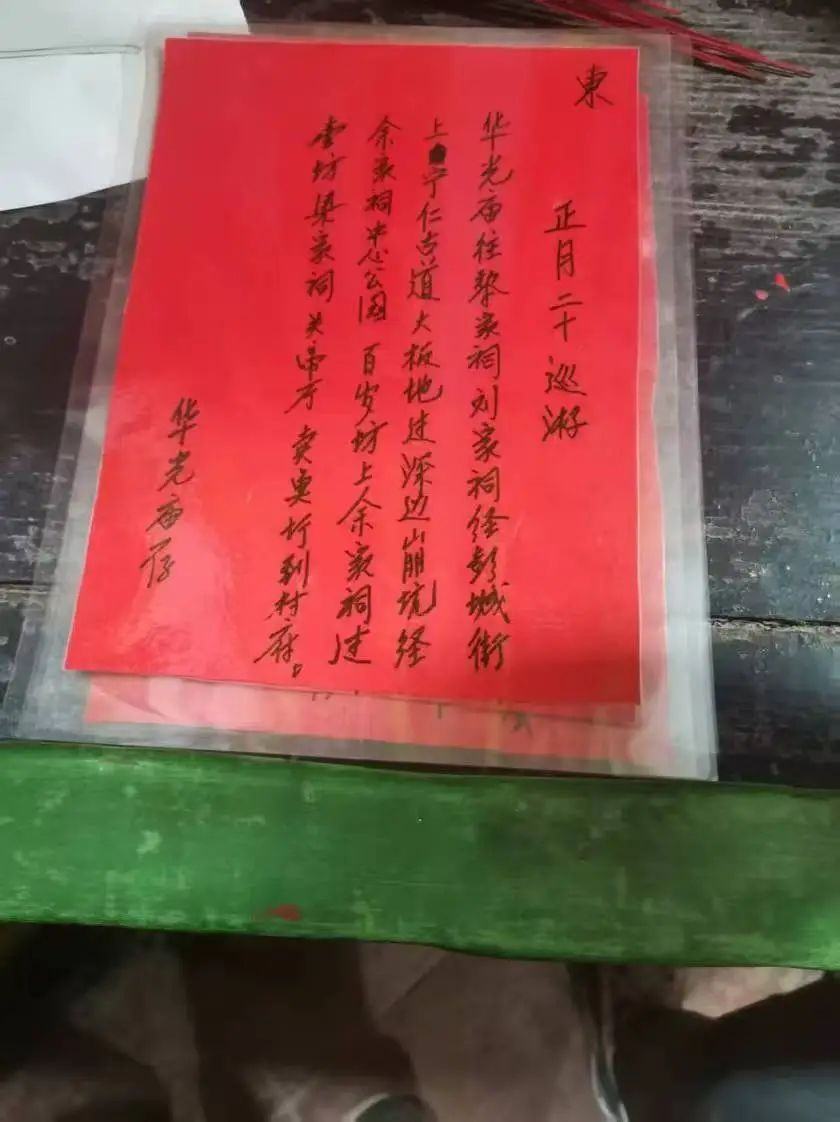 東
正月二十巡游
华光庙往黎家祠刘家祠经彭城街
上宁仁古道大板地过深边山崩坑经
余家祠中心公园 百岁坊上余家祠过
坊梁家祠关帝厅 卖 圩到村府。
华光庙存